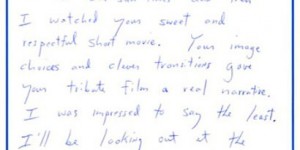 I watched your sweet and
respectful short movie. Your image
choices and clever transitions gave
your tribute film a real narrative.
I was impressed to say the least.
I'll be looking out at the